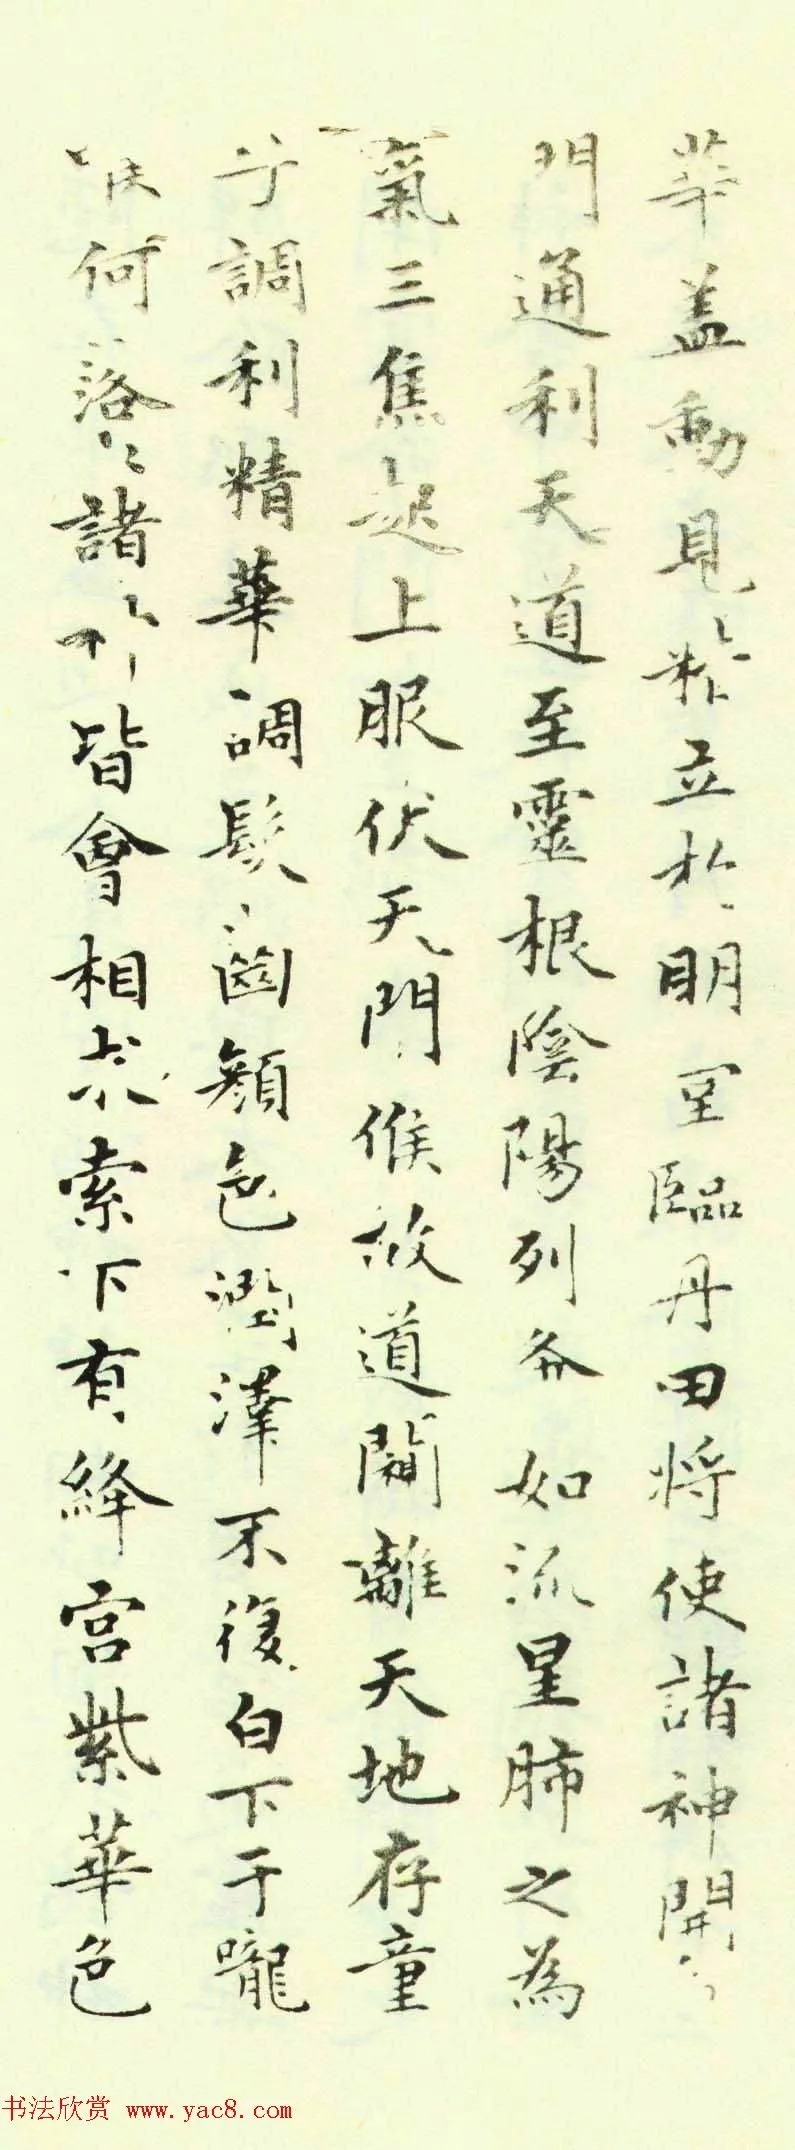 華盖動見精立於明堂臨丹田將使諸神開
門通利天道至靈根陰陽列分如流星肺之為
氣三焦起上服伏天門候故道闚離天地存童
子調利精華調髮齒顏色潤澤不復白下于嚨
喉何落〻諸神皆會相求索下有絳宮紫華色
书法欣赏 www.yac8.com